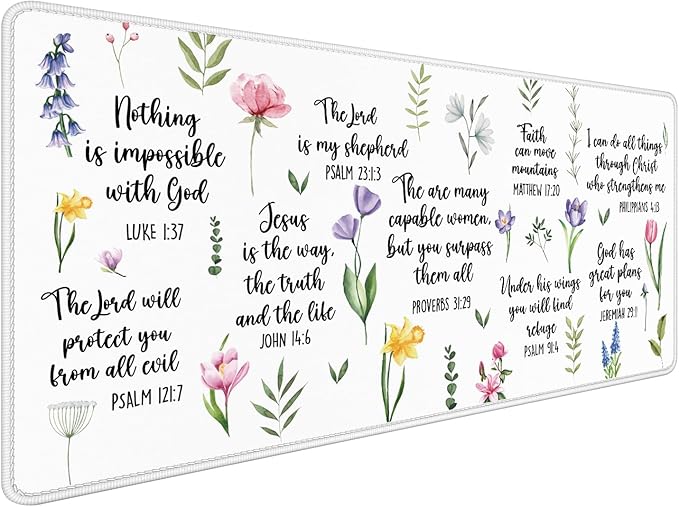 Nothing
is impossible
with God
LUKE 1:37
The Lord
is my shepherd
PSALM 23:1:3
Faith
can move
mountains
MATTHEW 17:20
I can do all things
through Christ
who strengthens me
PHILIPPIANS 4:13
Jesus
is the way,
the truth
and the life
JOHN 14:6
The are many
capable women,
but you surpass
them all
PROVERBS 31:29
The Lord will
protect you
from all evil
PSALM 121:7
Under his wings
you will find
refuge
PSALM 91:4
God has
great plans
for you
JEREMIAH 29:11